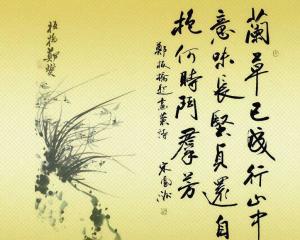 蘭草已成行山中
意味長堅貞還自
抱何時鬥羣芳
鄭板橋題畫蘭詩
板橋鄭燮